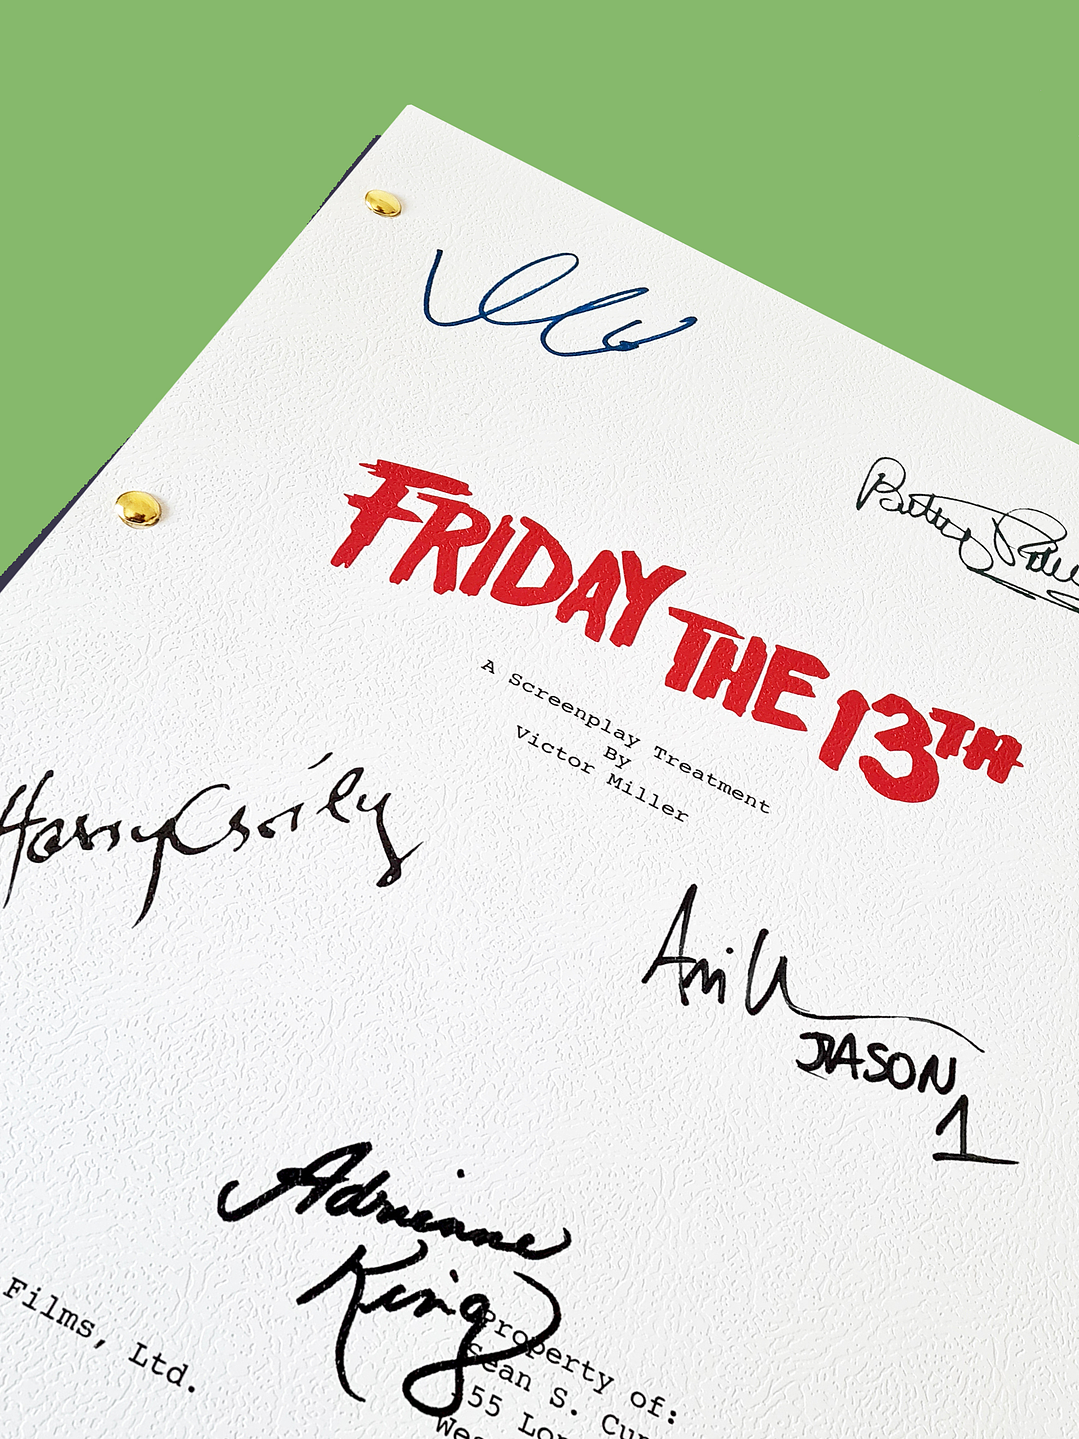 Betsy
FRIDAY THE 13TH
A Screenplay Treatment
By
Victor Miller
Harry Crosby
Ari
JASON
1
Adrienne
King
Films, Ltd.
Property of:
Sean S. Cun
55 Lon
Wes